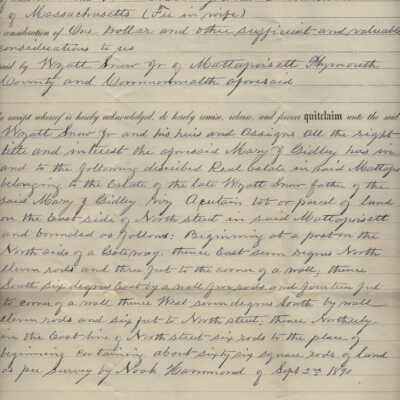 of Massachusetts (Fee in wife)
consideration of One Dollar and other sufficient and valuable
considerations to us
paid by Wyatt Snow Jr of Mattapoisett Plymouth
County and Commonwealth aforesaid
receipt whereof is hereby acknowledged, do hereby remise, release, and forever quitclaim unto the said
Wyatt Snow Jr and his heirs and Assigns all the right
title and interest the aforesaid Mary J Sidley has in
and to the following discribed Real Estate in said Mattapo
belonging to the Estate of the late Wyatt Snow father of the
said Mary J Sidley viz A certain lot or parcel of land
on the East side of North street in said Mattapoisett
and bounded as follows: Beginning at a post on the
North side of a Gateway; thence East seven degrees North
eleven rods and three feet to the corner of a wall, thence
South six degrees East by a wall five rods and fourteen feet
to corner of a wall thence West seven degrees South by wall
eleven rods and six feet to North street; thence Northerly
in the East line of North street six rods to the place of
beginning containing about sixty six square rods of land
as per survey by Noah Hammond of Sept 2nd 1890